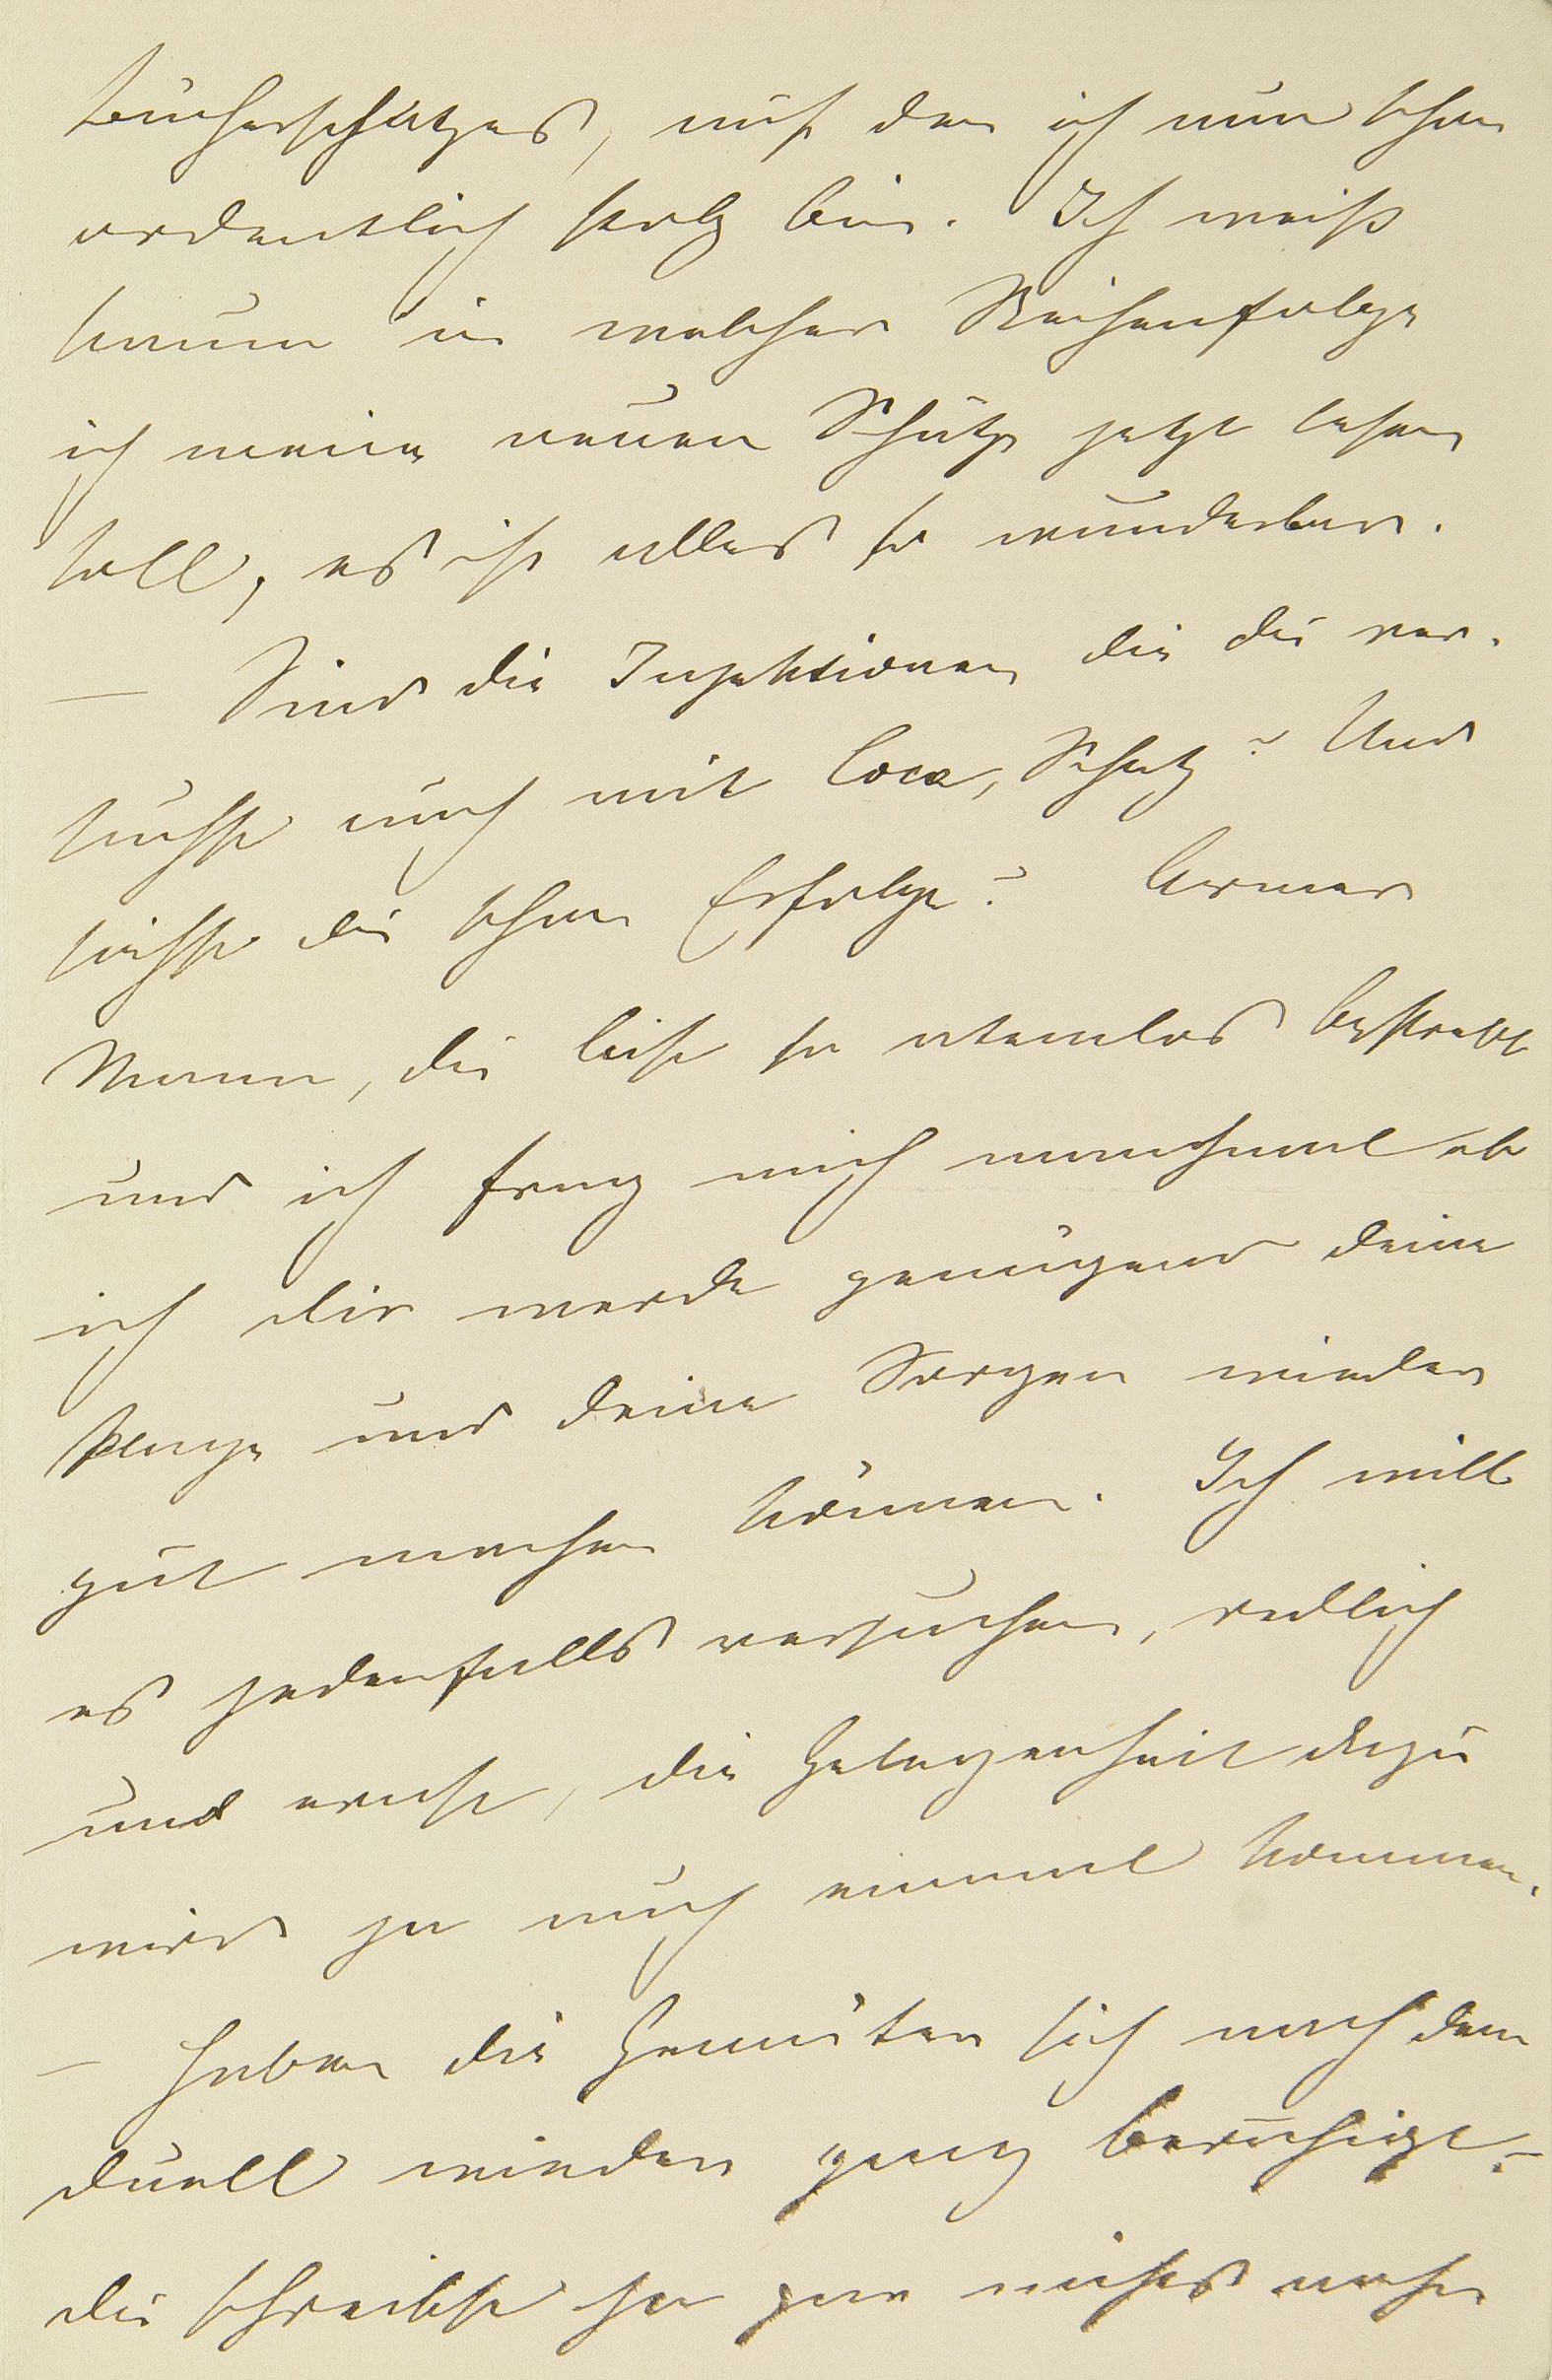 Bücherschatzes, auf den ich nun schon
ordentlich stolz bin. Ich weiß
kaum in welcher Reihenfolge
ich meine neuen Schätze jetzt lesen
soll, es ist alles so wunderbar.
— Sind die Injektionen die du ver-
suchst auch mit Coca, Schatz? Und
siehst du schon Erfolge? Armer
Mann, du bist so atemlos beschäftigt
und ich frag mich manchmal ob
ich dir werde genügend deine
Plage und deine Sorgen wieder
gut machen können. Ich will
es jedenfalls versuchen, redlich
und ernst, die Gelegenheit dazu
wird ja auch einmal kommen.
— Haben die Gemüter sich nach dem
Duell wieder ganz beruhigt?
du schreibst ja gar nichts mehr